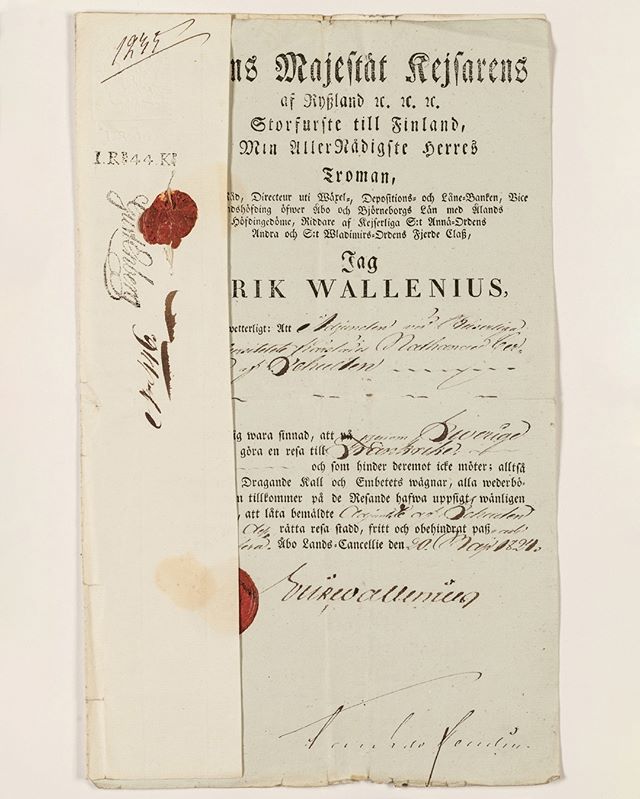 1235
1. R 44. K
ns Majestät Kejsarens
af Ryßland ꝛc. ꝛc. ꝛc.
Storfurste till Finland,
Min AllerNådigste Herres
Troman,
Råd, Directeur uti Wäxel-, Depositions- och Låne-Banken, Vice
ndshöfding öfwer Åbo och Björneborgs Län med Ålands
Höfdingedöme, Riddare af Kejserliga S:t Annä-Ordens
Andra och S:t Wladimirs-Ordens Fjerde Claß,
Jag
RIK WALLENIUS,
wetterligt: Att Adjuncten vid Kejserliga
Nathanael
af Schulten
ig wara sinnad, att på genom Sverige
göra en resa till Frankrike
och som hinder deremot icke möter; alltså
Dragande Kall och Embetets wägnar, alla wederbö-
n tillkommer på de Resande hafwa uppsigt, wänligen
, att låta bemäldte af Schulten
rätta resa stadd, fritt och obehindrat paß
Åbo Lands-Cancellie den 20 Maji 1821.
Erik Wallenius